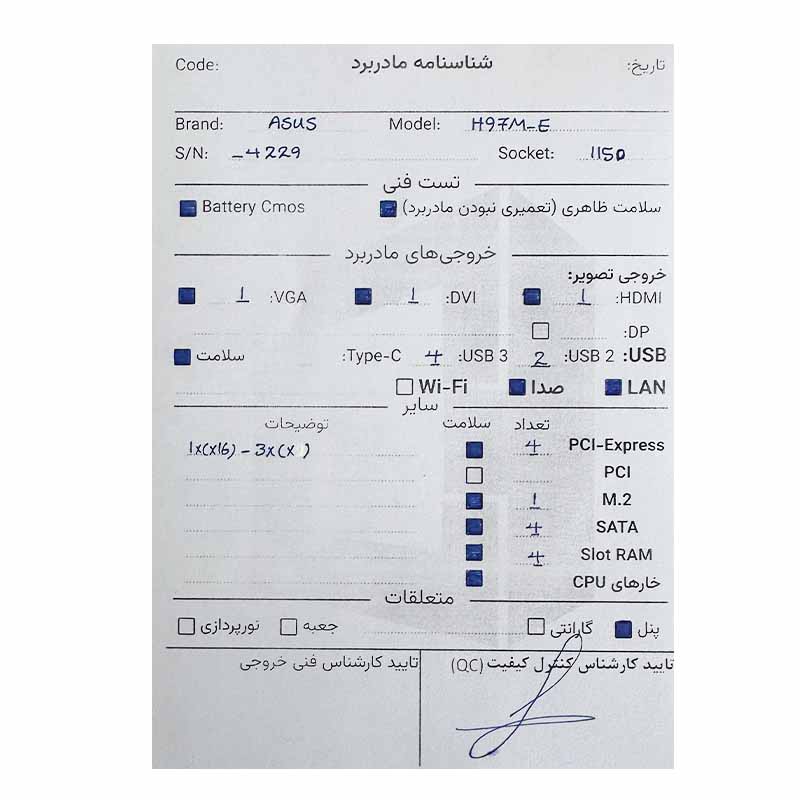 تاریخ: شناسنامه مادربرد Code:
Brand: ASUS Model: H97M-E
S/N: -4229 Socket: 1150
تست فنی
سلامت ظاهری (تعمیری نبودن مادربرد) Battery Cmos
خروجی‌های مادربرد
خروجی تصویر:
HDMI: 1 DVI: 1 VGA: 1
DP:
USB: USB 2: 2 USB 3: 4 Type-C: سلامت
LAN صدا Wi-Fi
سایر
تعداد سلامت توضیحات
PCI-Express 4 1x(x16) - 3x(x )
PCI
M.2 1
SATA 4
Slot RAM 4
خارهای CPU
متعلقات
پنل گارانتی جعبه نورپردازی
تایید کارشناس کنترل کیفیت (QC) تایید کارشناس فنی خروجی